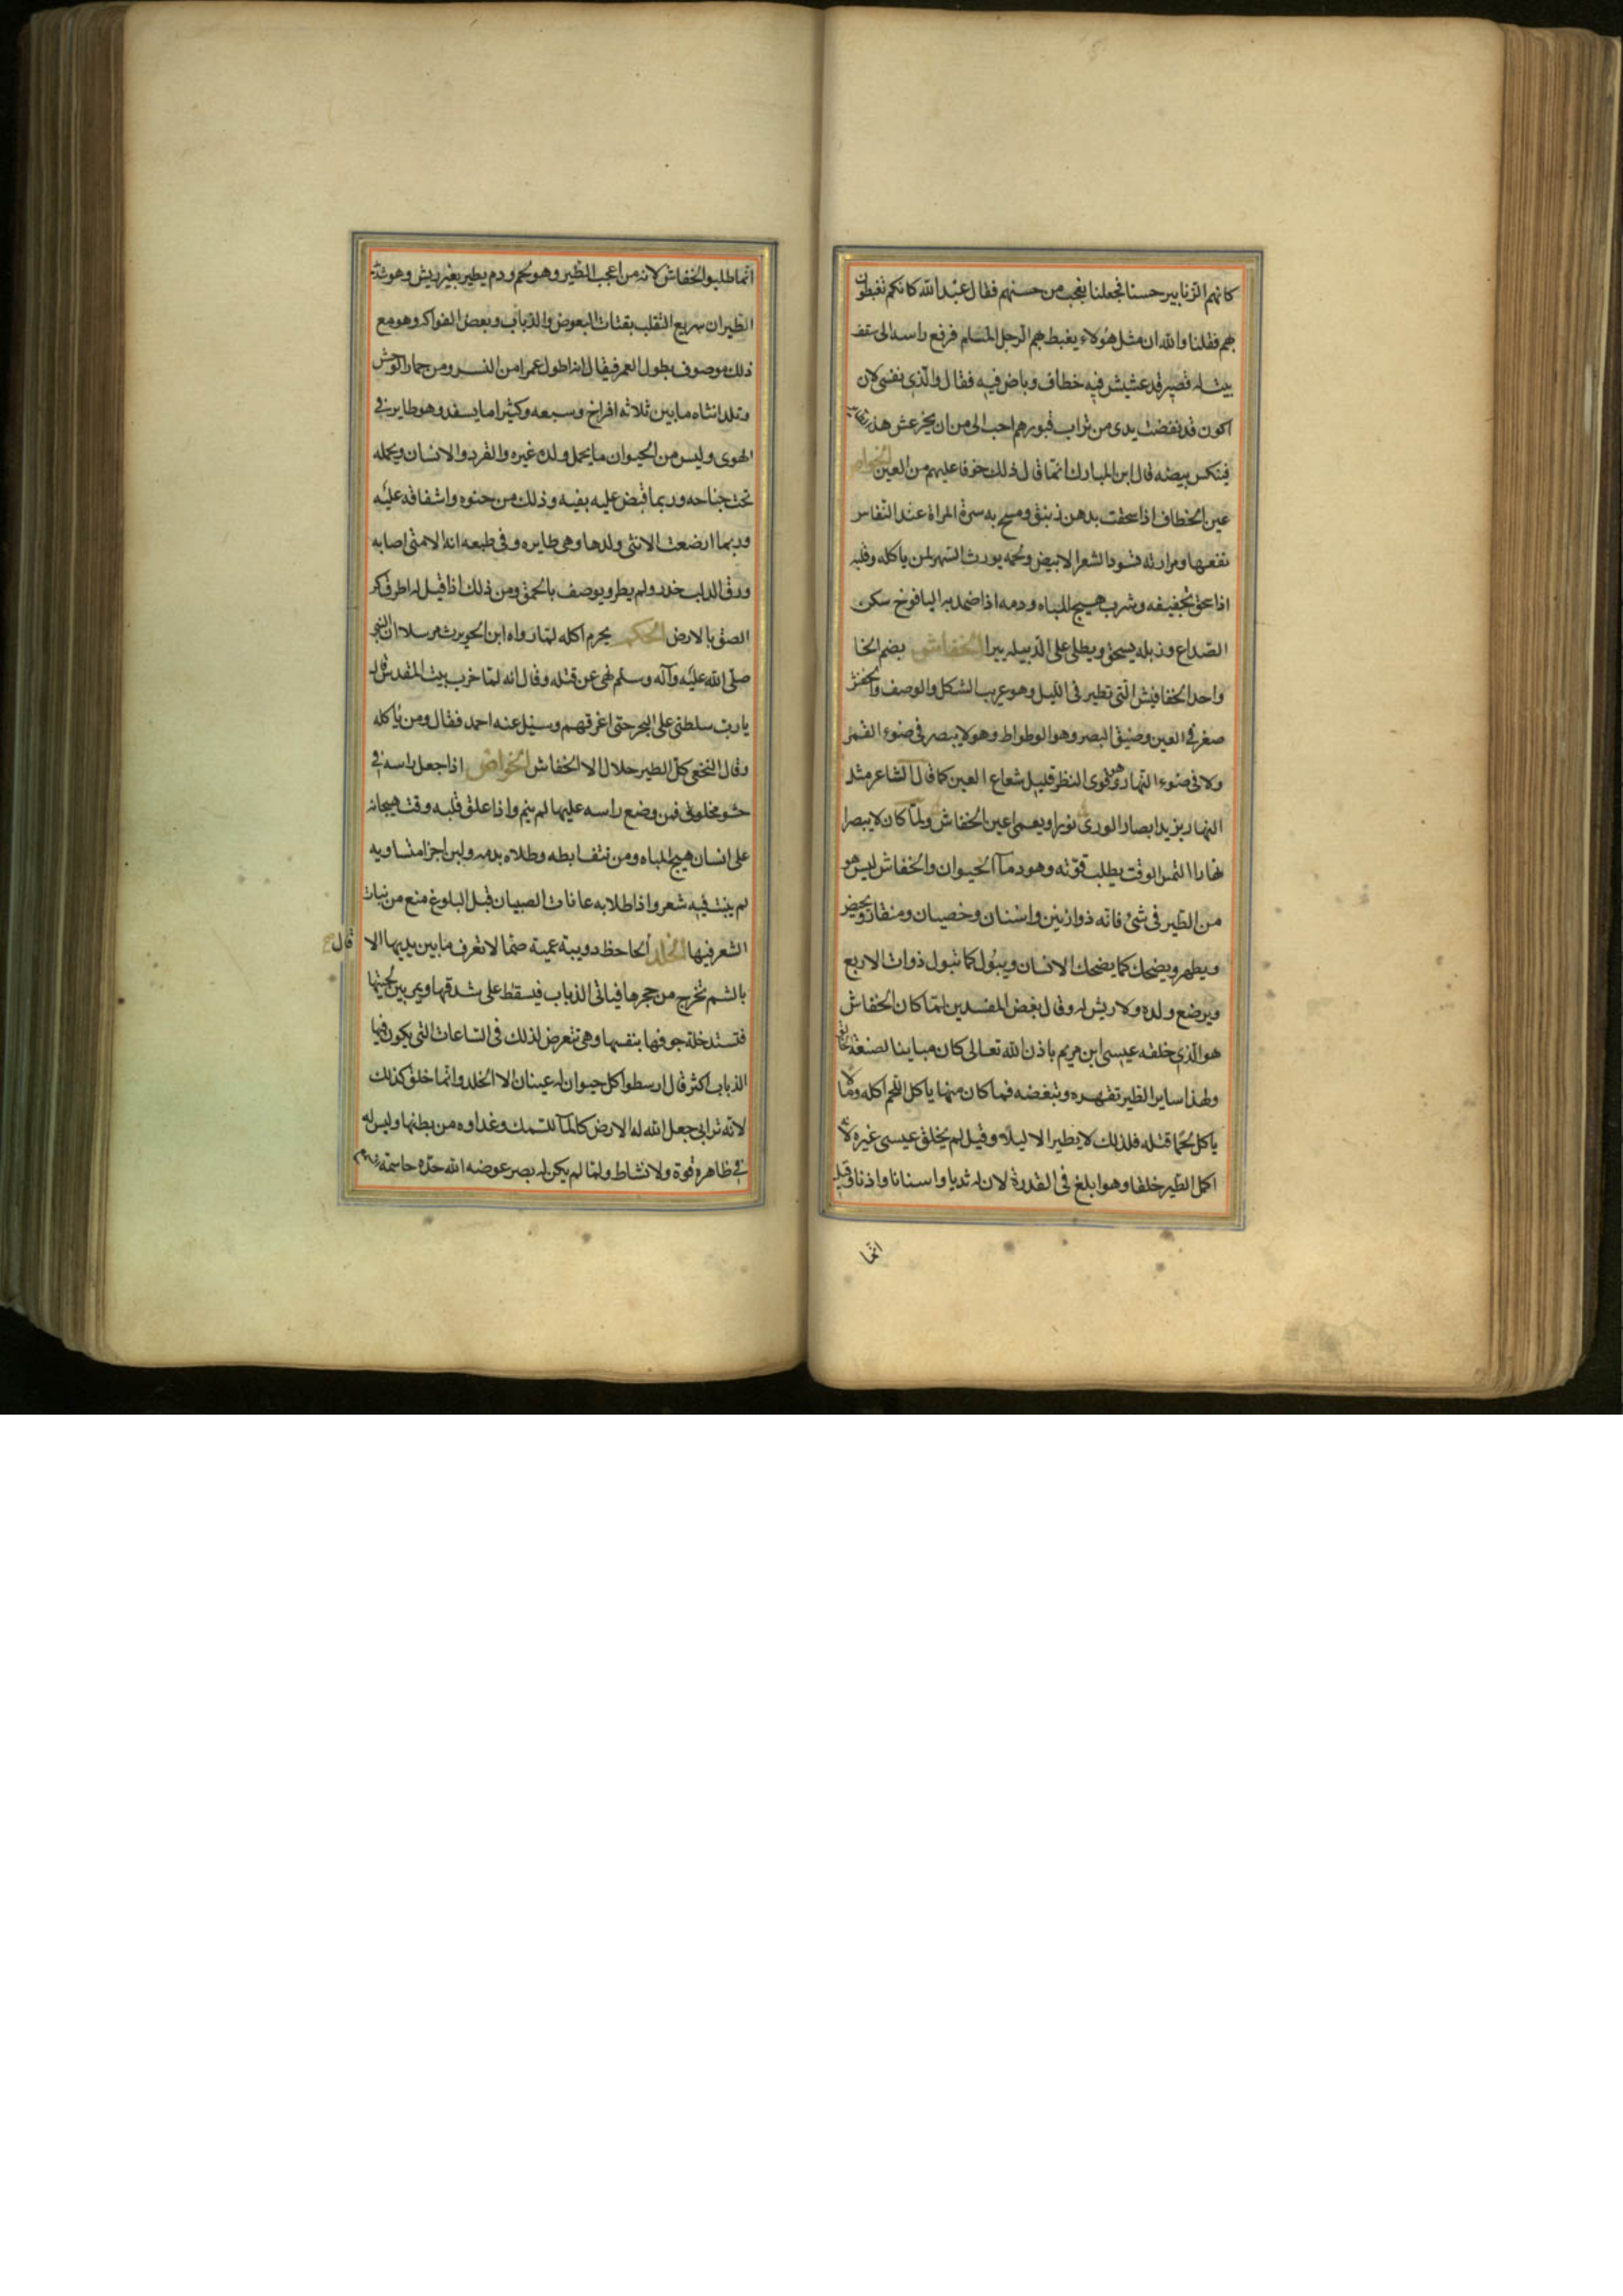 كانهم الزنابير حسنا فجعلنا نعجب من حسنهم فقال عبد الله كانكم تغبطون
بهم فقلنا والله ان مثل هؤلاء يغبط بهم الرجل المسلم فرفع راسه الى سقف
بيت له قصير قد عشش فيه خطاف وباض فيه فقال والذى نفسى لان
اكون قد نفضت يدى من تراب قبورهم احب الى من ان يخر عش هذا
فينكسر بيضه قال ابن المبارك انما قال ذلك خوفا عليهم من العين الخواص
عين الخطاف اذا سحقت بدهن زنبق ومسح به سرة المراة عند النفاس
نفعها ومرارته تسود الشعر الابيض ولحمه يورث السهر لمن ياكله وقلبه
اذا سحق بتجفيفه وشرب هيج الباه ودمه اذا ضمد به اليافوخ سكن
الصداع وزبله يسحق ويطلى على الدبيله يبرا الخفاش بضم الخا
واحد الخفافيش التى تطير فى الليل وهو غريب الشكل والوصف والخفش
صغر فى العين وضيق البصر وهو الوطواط وهو لا يبصر فى ضوء القمر
ولا فى ضوء النهار وهو قوى النظر قليل شعاع العين كما قال الشاعر مثل
النهار يزيد ابصار الورى نورا ويعمى اعين الخفاش ولما كان لا يبصر
نهارا التمس الوقت يطلب قوته وهو دما الحيوان والخفاش ليس هو
من الطير فى شئ فانه ذو اذنين واسنان وخصيان ومنقار ويحيض
ويطهر ويضحك كما يضحك الانسان ويبول كما تبول ذوات الاربع
ويرضع ولده ولا ريش له وقال بعض المفسدين لما كان الخفاش
هو الذى خلقه عيسى ابن مريم باذن الله تعالى كان مباينا لصنعة الخالق
ولهذا ساير الطير تقهره وتبغضه فما كان منها ياكل اللحم اكله وما لا
ياكل لحما قتله فلذلك لا يطير الا ليلا وقيل لم يخلق عيسى غيره لانه
اكمل الطير خلقا وهو ابلغ فى القدرة لان له ثديا واسنانا واذنا وقيل
انما
انما طلبوا الخفاش لانه من اعجب الطير وهو لحم ودم يطير بغير ريش وهو شديد
الطيران سريع التقلب يقتات البعوض والذباب وبعض الفواكه وهو مع
ذلك موصوف بطول العمر فيقال انه اطول عمرا من النسر ومن حمار الوحش
وتلد انثاه ما بين ثلاثه افراخ وسبعه وكثيرا ما يسفد وهو طاير فى
الهوى وليس من الحيوان ما يحمل ولده غيره والقرد والانسان ويحمله
تحت جناحه وربما قبض عليه بفيه وذلك من حنوه واشفاقه عليه
وربما ارضعت الانثى ولدها وهى طايره وفى طبعه انه الا متى اصابه
ورق الدلب خدر ولم يطر ويوصف بالحمق ومن ذلك اذا قيل له اطرق كر
الصق بالارض الحكم يحرم اكله لما رواه ابن الحويرث مرسلا ان النبى
صلى الله عليه وآله وسلم نهى عن قتله وقال انه لما خرب بيت المقدس قال
يارب سلطنى على البحر حتى اغرقهم وسئل عنه احمد فقال ومن ياكله
وقال النخعى كل الطير حلال الا الخفاش الخواص اذا جعل راسه فى
حشو مخلوف فمن وضع راسه عليها لم ينم واذا علق قلبه وقت هيجانه
على انسان هيج الباه ومن نتف ابطه وطلاه بدمه ولبن اجزا متساويه
لم ينبت فيه شعر واذا طلا به عانات الصبيان قبل البلوغ منع من نبات
الشعر فيها الخلد الحاحظ دويبة عمية صما لا تعرف ما بين يديها الا
قال
بالشم تخرج من حجرها فياتى الذباب فيسقط على شدقها ويمر بين لحييها
فتستدخلة جوفها بنفسها وهى تتعرض لذلك فى الساعات التى يكون فيها
الذباب اكثر قال ارسطوا كل حيوان له عينان الا الخلد وانما خلق كذلك
لانه ترابى جعل الله له الارض كالما للسمك وغداوه من بطنها وليس له
فى ظاهره قوة ولا نشاط ولما لم يكن له بصر عوضه الله حدة حاسة